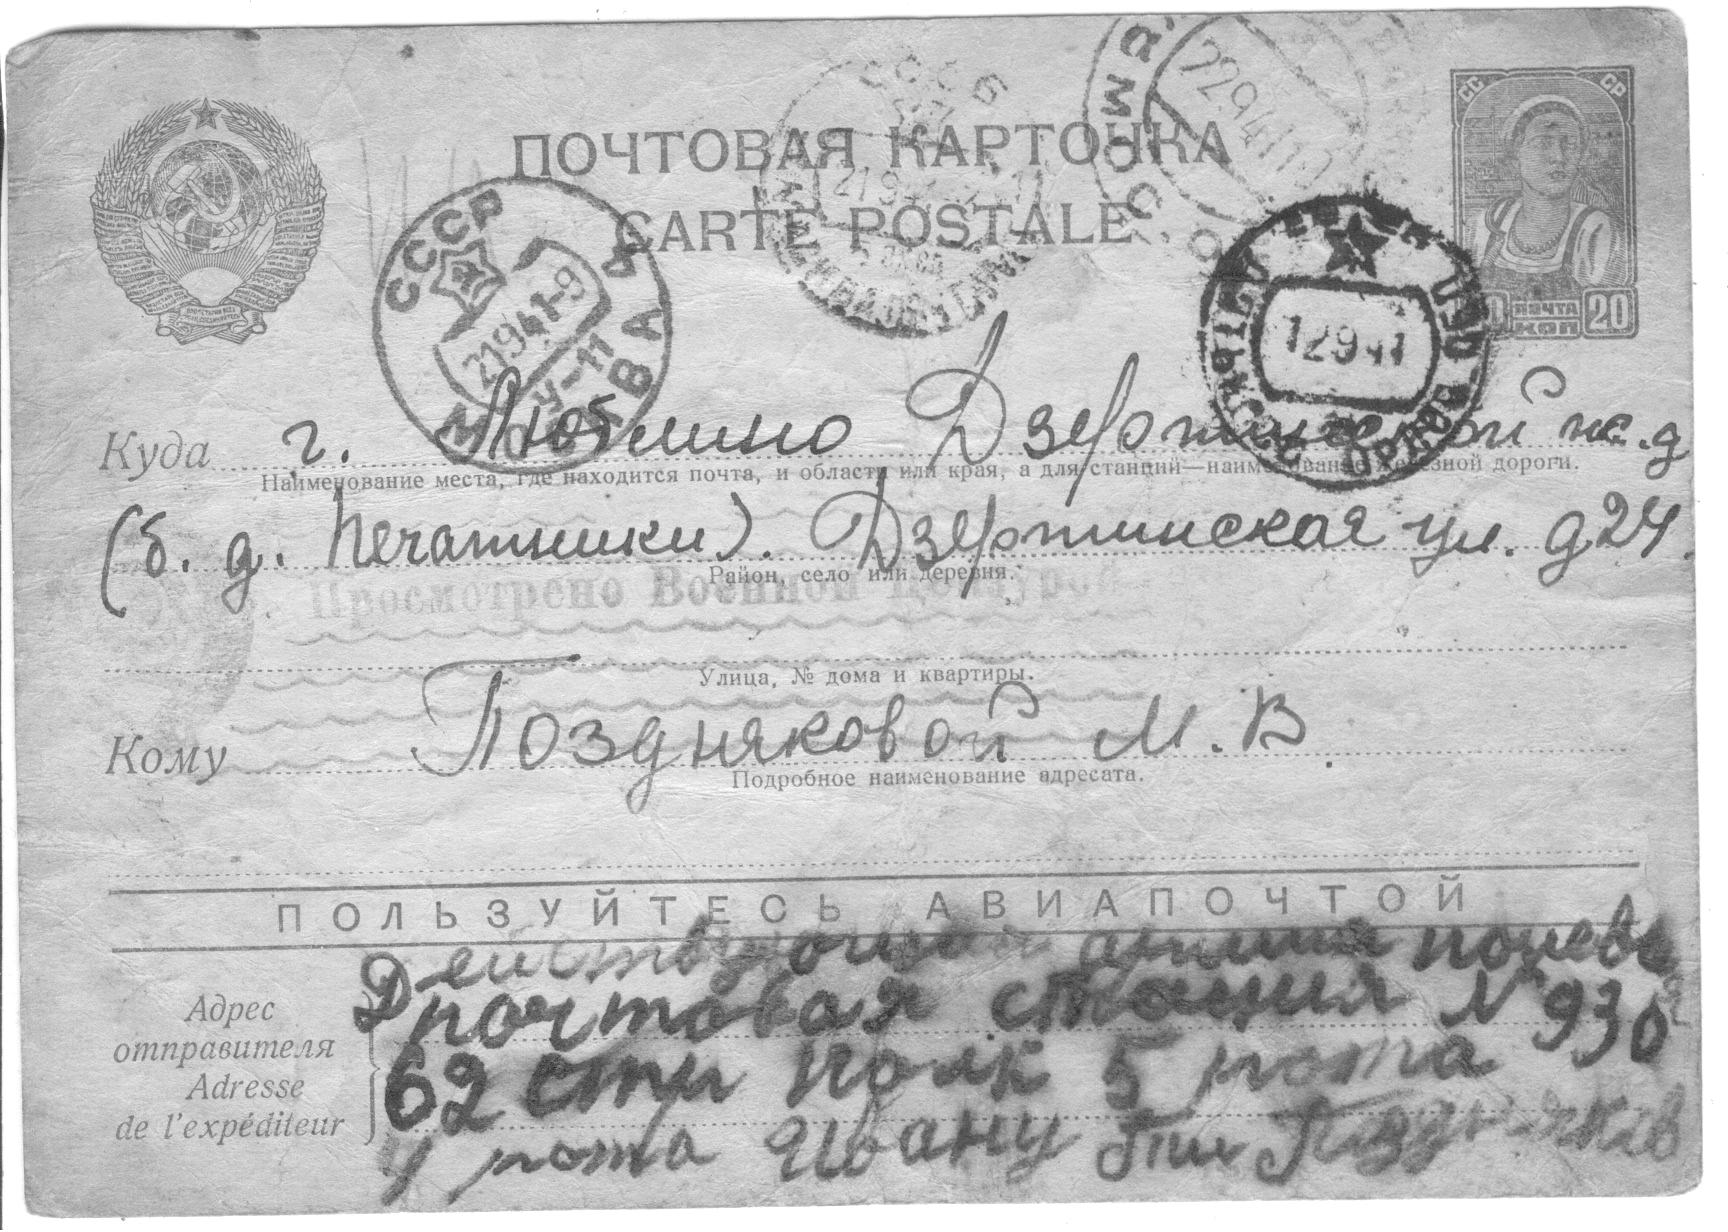 ПОЧТОВАЯ КАРТОЧКА
CARTE POSTALE
СС СР
ПОЧТА
КОП 20
СССР
МОСКВА 4
21941-9
У-11
12941
Куда г. Люблино Дзержинской ж.д
Наименование места, где находится почта, и области или края, а для станций—наименование железной дороги.
(б. д. Печатники). Дзержинская ул. д 24.
Район, село или деревня.
Просмотрено Военной Цензурой
Улица, № дома и квартиры.
Кому Поздняковой М. В.
Подробное наименование адресата.
ПОЛЬЗУЙТЕСЬ АВИАПОЧТОЙ
Адрес
отправителя
Adresse
de l'expéditeur
Действующая армия полевая
почтовая станция № 930
62 стр полк 5 рота
рота Ивану Поздняков